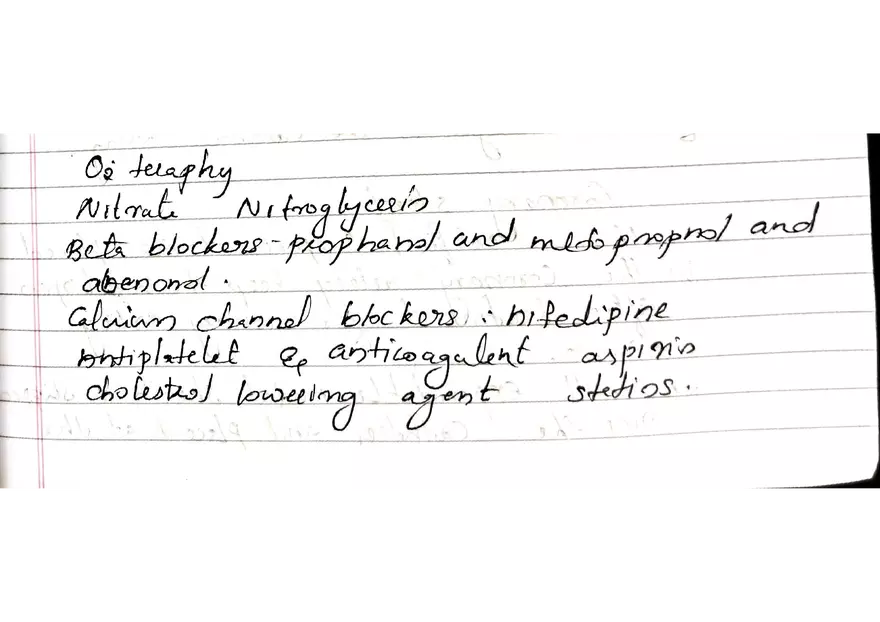 O2 teraphy
Nitrate Nitroglycerin
Beta blockers - prophanol and metopropnol and
atenonol.
Calcium channel blockers : nifedipine
Antiplatelet & anticoagulent aspirin
cholestrol loweeing agent stetins.